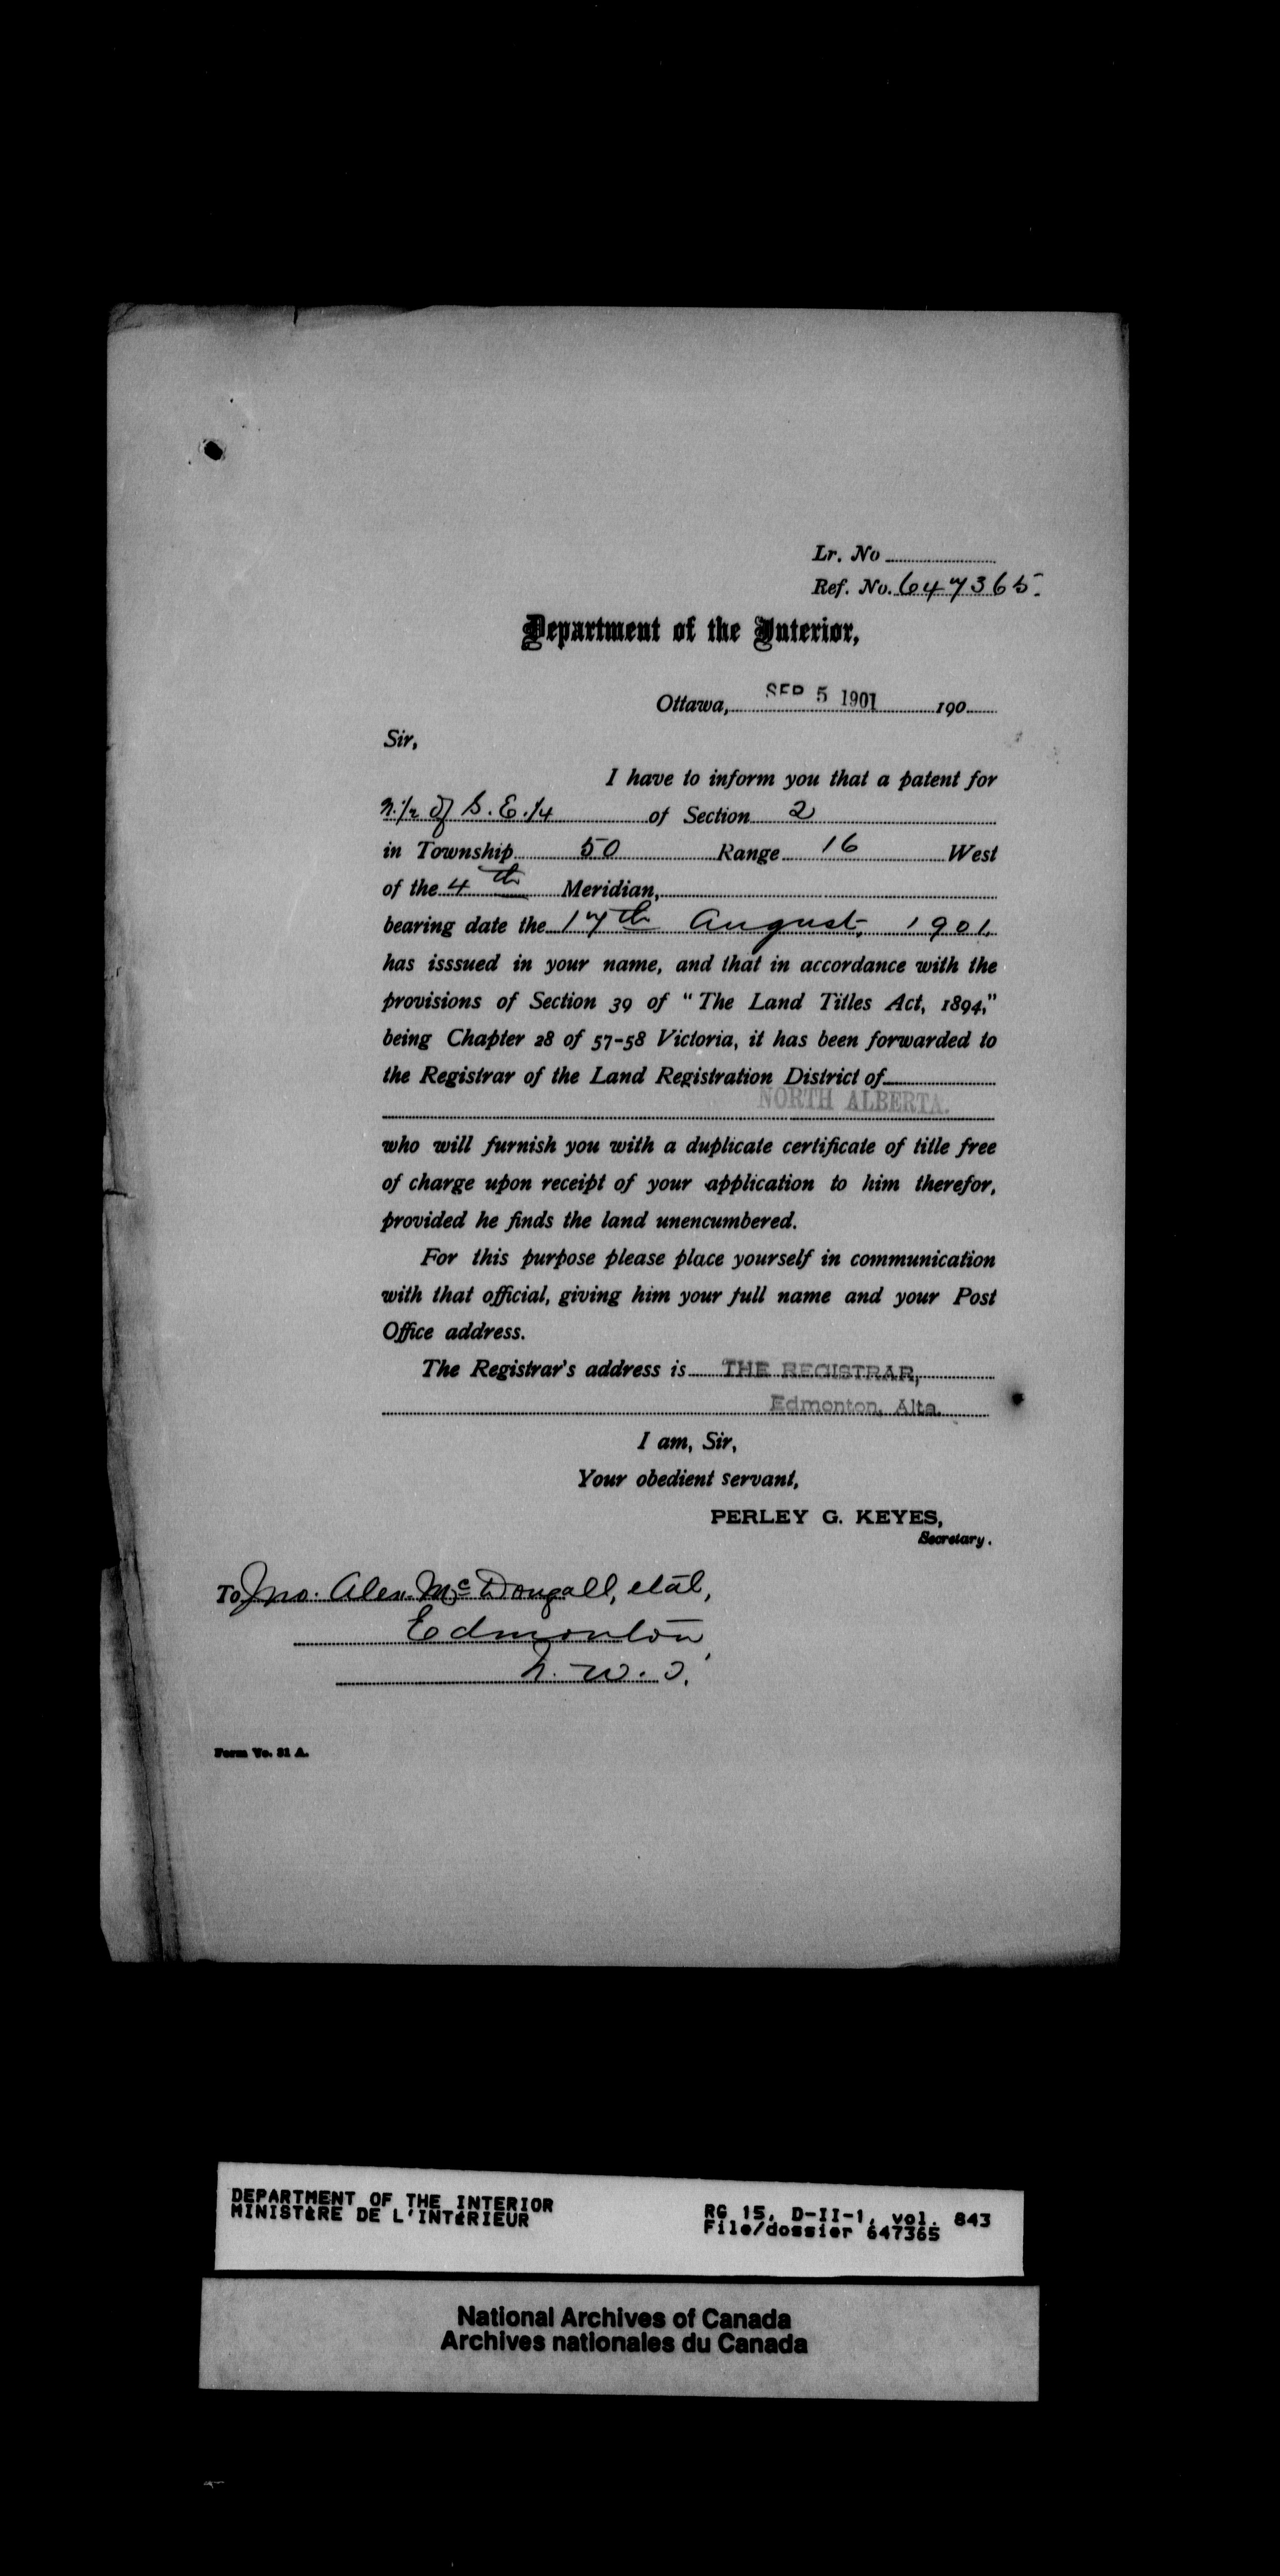 Lr. No
Ref. No. 647365.
Department of the Interior,
Ottawa, SEP 5 1901 190
Sir,
I have to inform you that a patent for
N. 1/2 of S. E. 1/4 of Section 2
in Township 50 Range 16 West
of the 4th Meridian,
bearing date the 17th August, 1901,
has isssued in your name, and that in accordance with the
provisions of Section 39 of "The Land Titles Act, 1894,"
being Chapter 28 of 57-58 Victoria, it has been forwarded to
the Registrar of the Land Registration District of
NORTH ALBERTA.
who will furnish you with a duplicate certificate of title free
of charge upon receipt of your application to him therefor,
provided he finds the land unencumbered.
For this purpose please place yourself in communication
with that official, giving him your full name and your Post
Office address.
The Registrar's address is THE REGISTRAR,
Edmonton, Alta.
I am, Sir,
Your obedient servant,
PERLEY G. KEYES,
Secretary.
To Jno. Alex. McDougall, et al,
Edmonton,
N. W. T.
Form No. 31 A.
DEPARTMENT OF THE INTERIOR
MINISTÈRE DE L'INTÉRIEUR
RG 15, D-II-1, vol. 843
File/dossier 647365
National Archives of Canada
Archives nationales du Canada